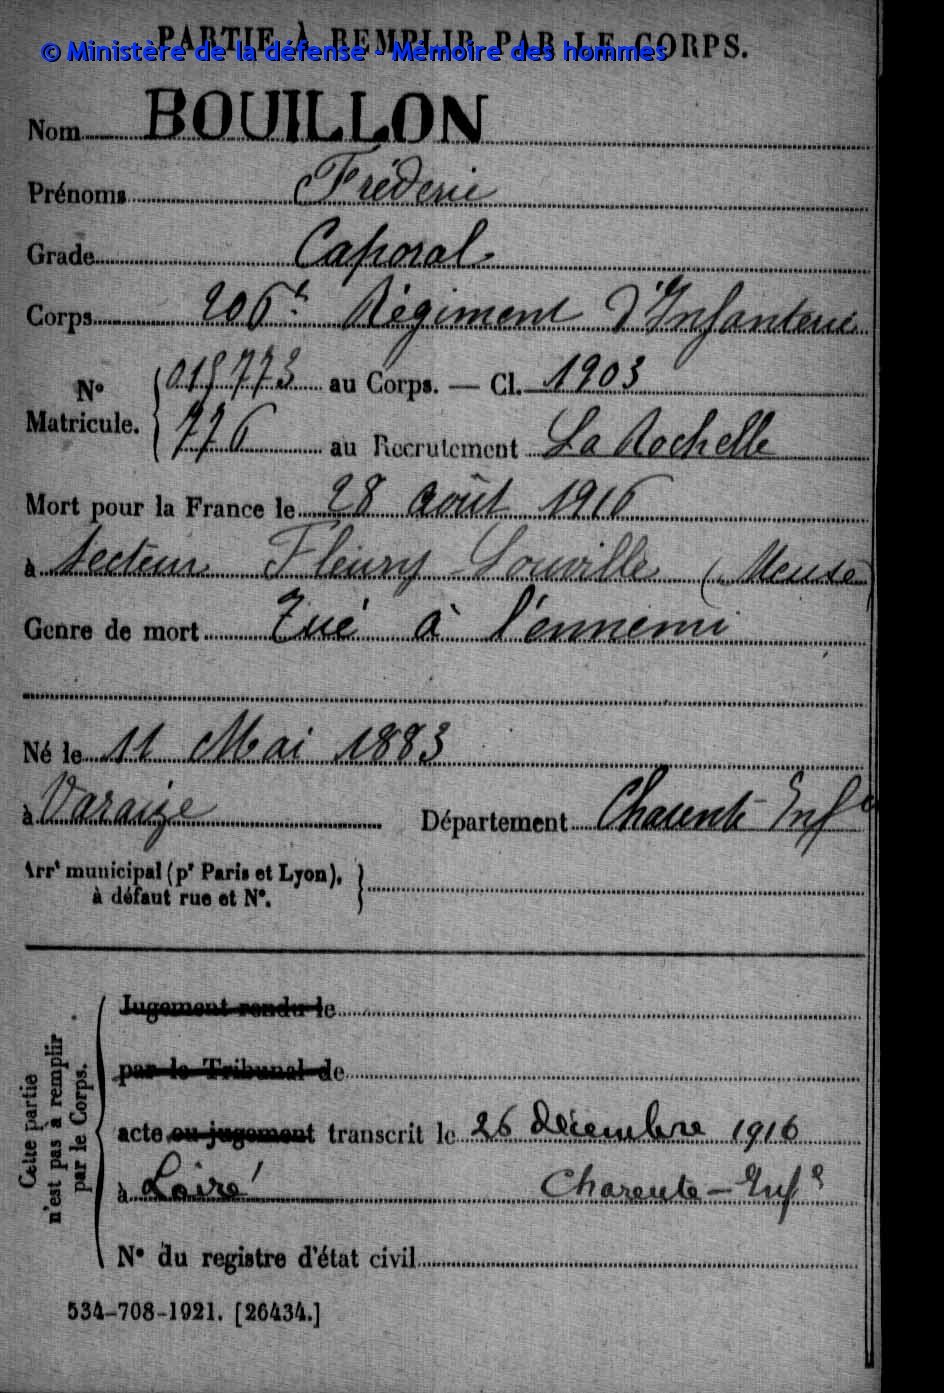 PARTIE À REMPLIR PAR LE CORPS.
© Ministère de la défense - Mémoire des hommes
Nom BOUILLON
Prénoms Fréderic
Grade Caporal
Corps 206e Régiment d'Infanterie
No Matricule. 015773 au Corps. — Cl. 1903
776 au Recrutement La Rochelle
Mort pour la France le 28 août 1916
à Secteur Fleury Souville (Meuse)
Genre de mort Tué à l'ennemi
Né le 11 Mai 1883
à Varaize Département Charente Infre
Arrt municipal (pr Paris et Lyon),
à défaut rue et No.
Cette partie
n'est pas à remplir
par le Corps.
Jugement rendu le
par le Tribunal de
acte ou jugement transcrit le 26 Décembre 1916
à Loiré Charente-Infe
No du registre d'état civil
534-708-1921. [26434.]